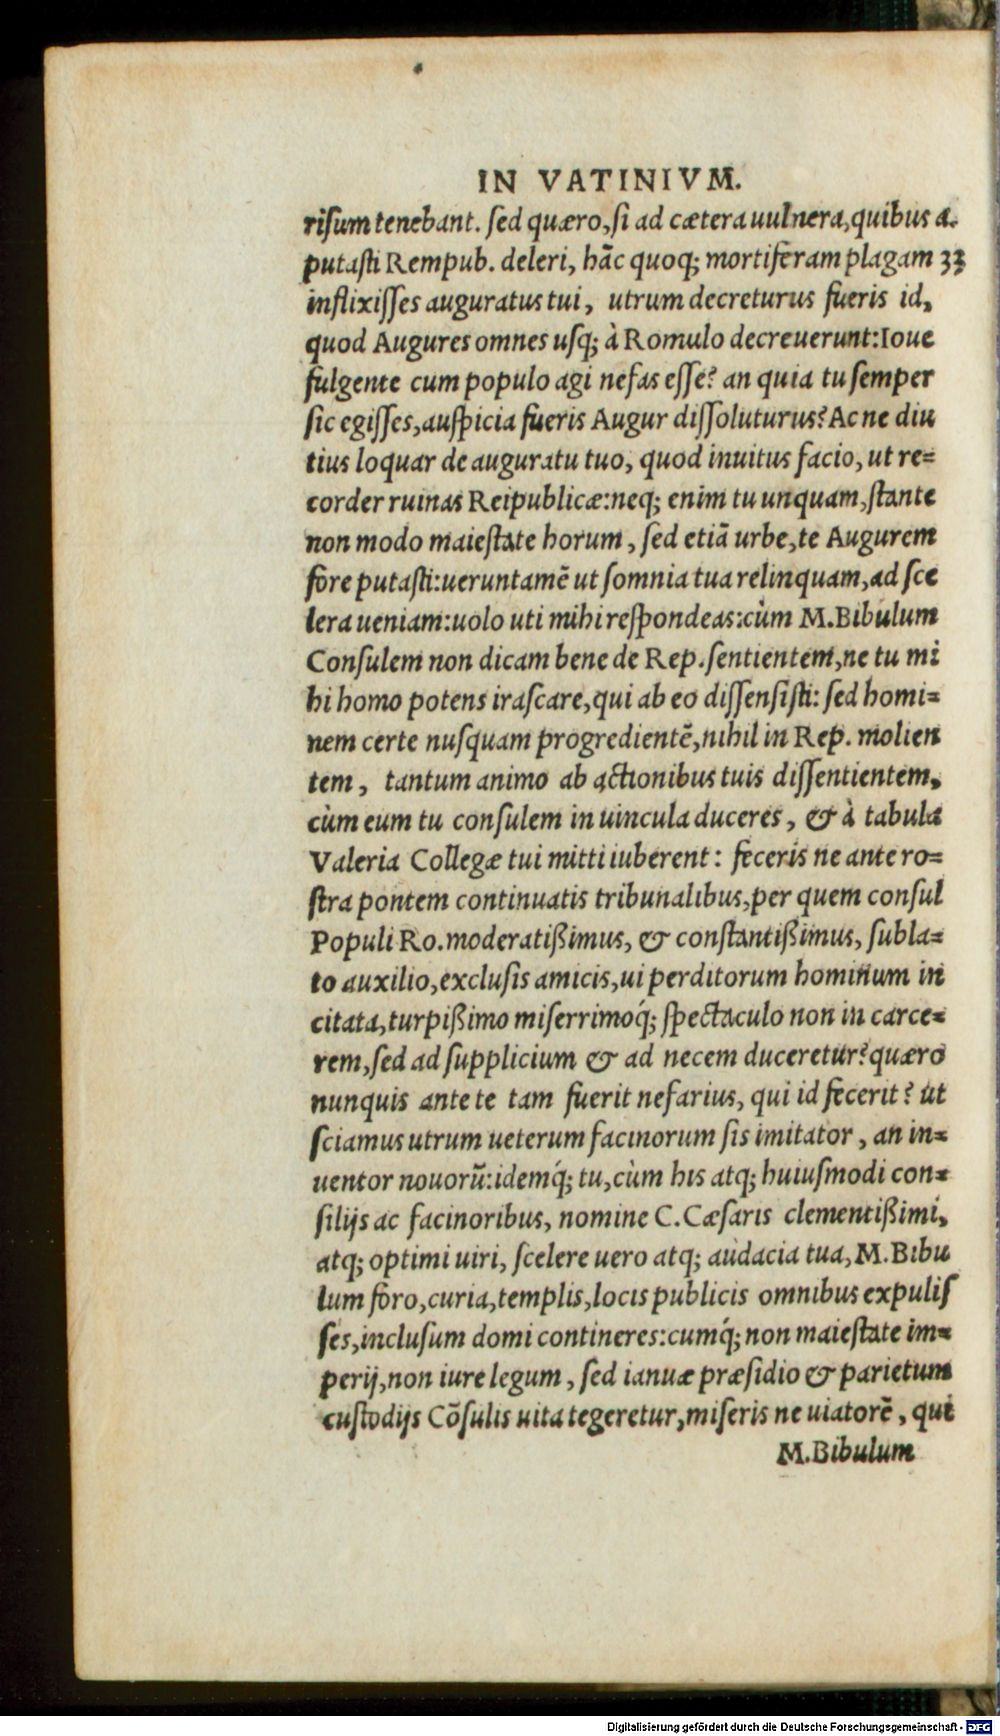 IN VATINIVM.
risum tenebant. sed quæro, si ad cætera uulnera, quibus a.
putasti Rempub. deleri, hāc quoq; mortiferam plagam 33
inflixisses auguratus tui, utrum decreturus fueris id,
quod Augures omnes usq; à Romulo decreuerunt: Ioue
fulgente cum populo agi nefas esse? an quia tu semper
sic egisses, auspicia fueris Augur dissoluturus? Ac ne diu
tius loquar de auguratu tuo, quod inuitus facio, ut re=
corder ruinas Reipublicæ: neq; enim tu unquam, stante
non modo maiestate horum, sed etiā urbe, te Augurem
fore putasti: ueruntamē ut somnia tua relinquam, ad sce
lera ueniam: uolo uti mihi respondeas: cùm M. Bibulum
Consulem non dicam bene de Rep. sentientem, ne tu mi
hi homo potens irascare, qui ab eo dissensisti: sed homi=
nem certe nusquam progredientē, nihil in Rep. molien
tem, tantum animo ab actionibus tuis dissentientem,
cùm eum tu consulem in uincula duceres, & à tabula
Valeria Collegæ tui mitti iuberent: feceris ne ante ro=
stra pontem continuatis tribunalibus, per quem consul
Populi Ro. moderatißimus, & constantißimus, subla=
to auxilio, exclusis amicis, ui perditorum hominum in
citata, turpißimo miserrimoq́; spectaculo non in carce=
rem, sed ad supplicium & ad necem duceretur? quæro
nunquis ante te tam fuerit nefarius, qui id fecerit? ut
sciamus utrum ueterum facinorum sis imitator, an in=
uentor nouorū: idemq́; tu, cùm his atq; huiusmodi con=
silijs ac facinoribus, nomine C. Cæsaris clementißimi,
atq; optimi uiri, scelere uero atq; audacia tua, M. Bibu
lum foro, curia, templis, locis publicis omnibus expulis
ses, inclusum domi contineres: cumq́; non maiestate im=
perij, non iure legum, sed ianuæ præsidio & parietum
custodijs Cōsulis uita tegeretur, miseris ne uiatorē, qui
M. Bibulum
Digitalisierung gefördert durch die Deutsche Forschungsgemeinschaft - DFG